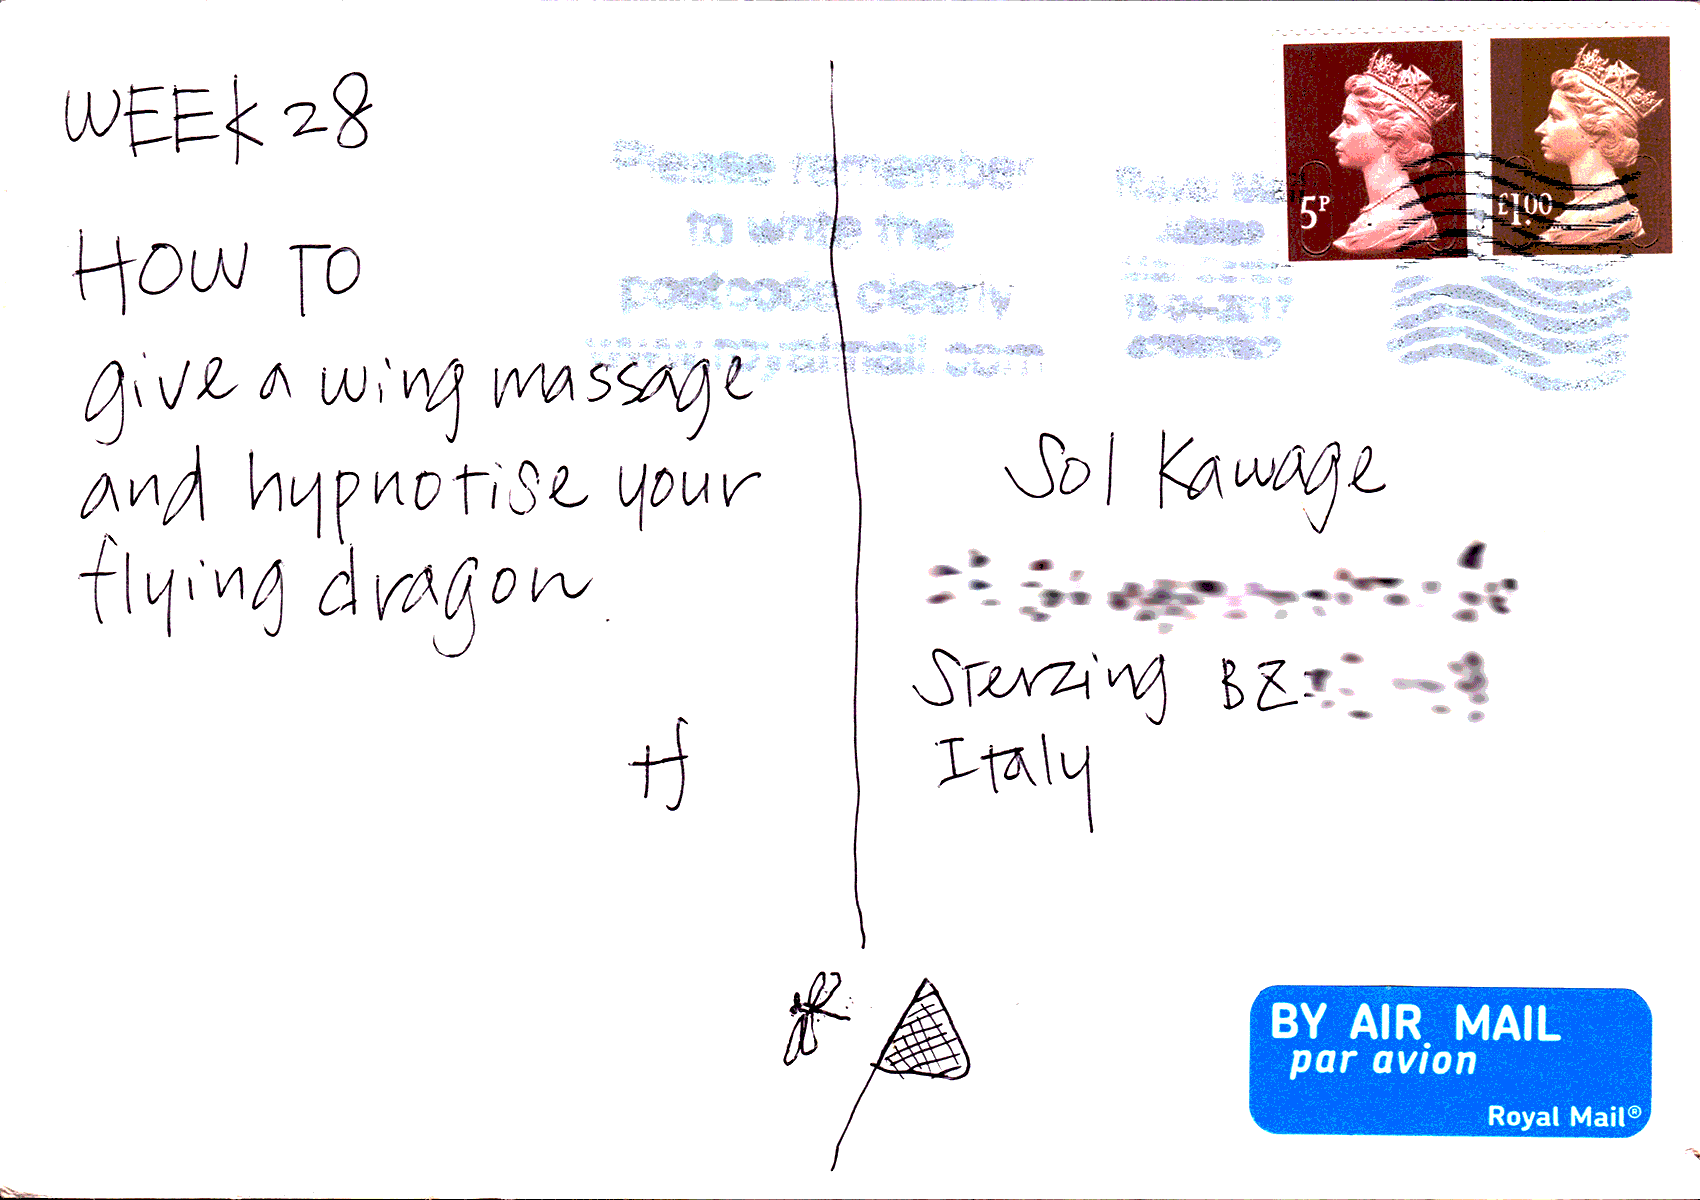 WEEK 28
HOW TO
give a wing massage
and hypnotise your
flying dragon
Hf
Please remember
to write the
postcode clearly
www.royalmail.com
Royal Mail
5P
£1.00
Sol Kawage
Sterzing BZ
Italy
BY AIR MAIL
par avion
Royal Mail®